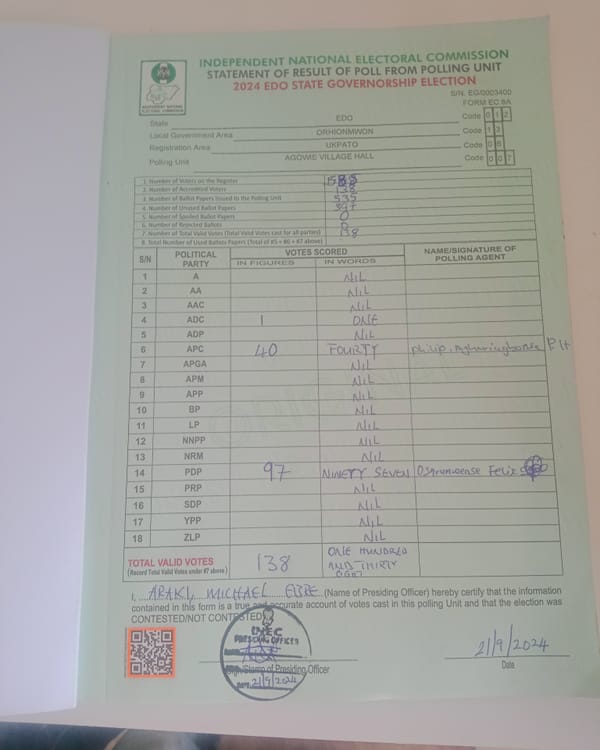 INDEPENDENT NATIONAL ELECTORAL COMMISSION
STATEMENT OF RESULT OF POLL FROM POLLING UNIT
2024 EDO STATE GOVERNORSHIP ELECTION
S/N. EG/0003400
FORM EC 8A
INDEPENDENT NATIONAL
ELECTORAL COMMISSION
State EDO Code 0 1 2
Local Government Area ORHIONMWON Code 1 3
Registration Area UKPATO Code 0 6
Polling Unit AGOWIE VILLAGE HALL Code 0 0 7
1. Number of Voters on the Register
2. Number of Accredited Voters 138
3. Number of Ballot Papers Issued to the Polling Unit 535
4. Number of Unused Ballot Papers 397
5. Number of Spoiled Ballot Papers 0
6. Number of Rejected Ballots
7. Number of Total Valid Votes (Total Valid Votes cast for all parties)
8. Total Number of Used Ballots Papers (Total of #5 + #6 + #7 above)
S/N POLITICAL PARTY VOTES SCORED NAME/SIGNATURE OF POLLING AGENT
IN FIGURES IN WORDS
1 A NIL
2 AA NIL
3 AAC NIL
4 ADC 1 ONE
5 ADP NIL
6 APC 40 FOURTY Philip
7 APGA NIL
8 APM NIL
9 APP NIL
10 BP NIL
11 LP NIL
12 NNPP NIL
13 NRM NIL
14 PDP 97 NINETY SEVEN Felix
15 PRP NIL
16 SDP NIL
17 YPP NIL
18 ZLP NIL
TOTAL VALID VOTES 138 ONE HUNDRED
(Record Total Valid Votes under #7 above) AND THIRTY
I, ARAKI, MICHAEL (Name of Presiding Officer) hereby certify that the information
contained in this form is a true and accurate account of votes cast in this polling Unit and that the election was
CONTESTED/NOT CONTESTED.
INEC
PRESIDING OFFICER
DATE 21/9/2024
Sign/Stamp of Presiding Officer
21/9/2024
Date